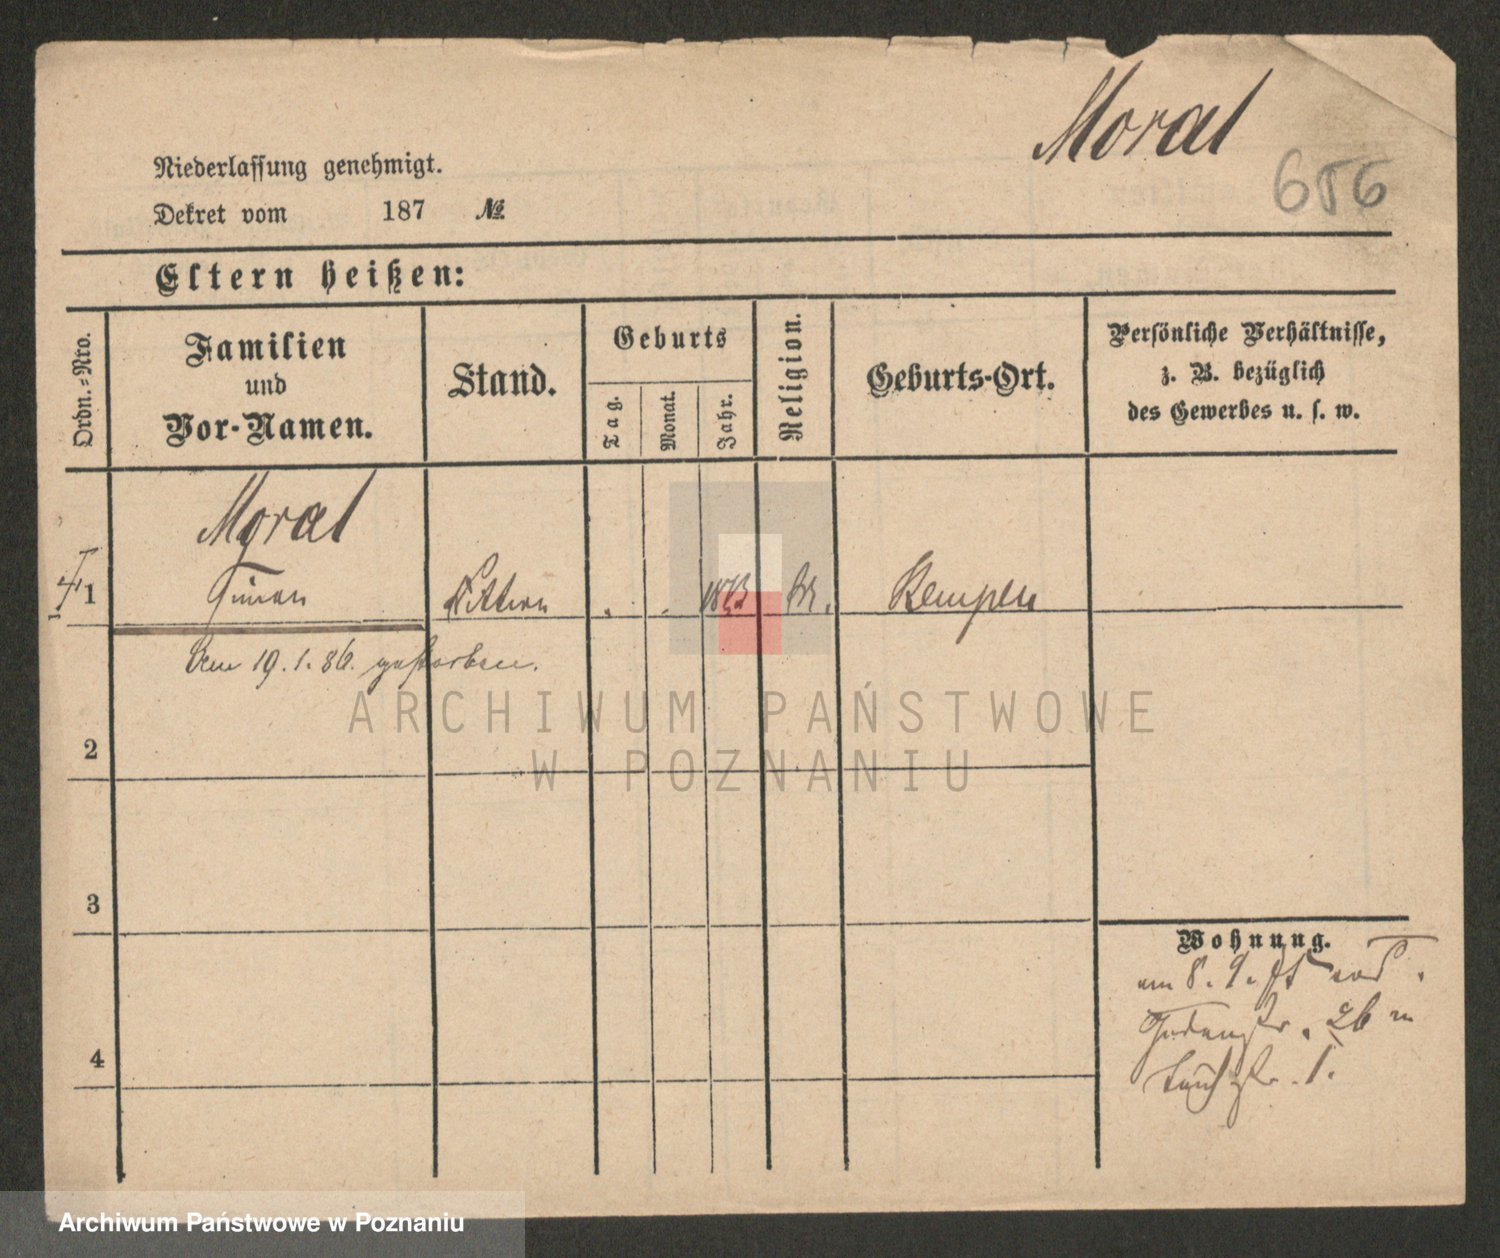 Moral
656
Niederlassung genehmigt.
Dekret vom 187 №
Eltern heißen:
Ordn.-Nro.
Familien
und
Vor-Namen.
Stand.
Geburts
Tag.
Monat.
Jahr.
Religion.
Geburts-Ort.
Persönliche Verhältnisse,
z. B. bezüglich
des Gewerbes u. s. w.
Moral
1
Kempen
Den 19.1.86. gestorben.
ARCHIWUM PAŃSTWOWE
W POZNANIU
2
3
Wohnung.
am 8. 9.
Judenstr. 26 n
4
1.
Archiwum Państwowe w Poznaniu